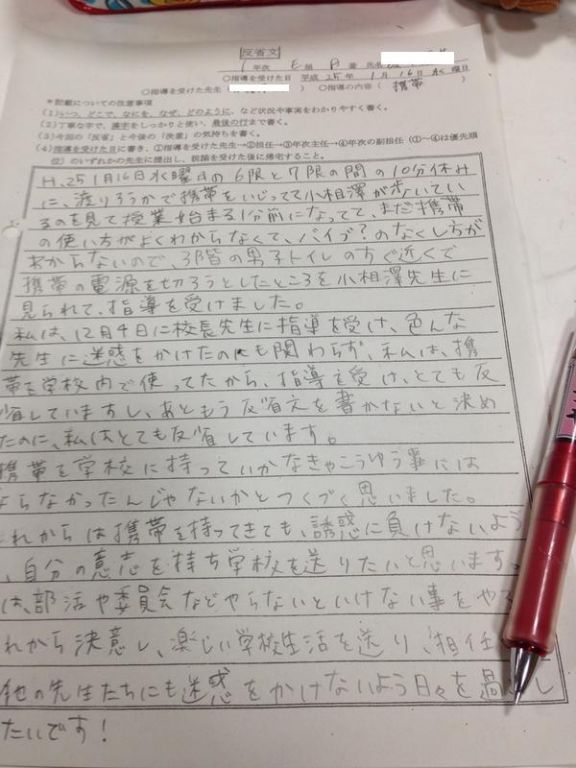 反省文
1年次 E組 番 氏名
○指導を受けた日 平成25年1月16日水曜日
○指導を受けた先生( ) ○指導の内容( 携帯 )
*記載についての注意事項
(1)いつ、どこで、なにを、なぜ、どのように、など状況や事実をわかりやすく書く。
(2)丁寧な字で、漢字をしっかりと使い、最後の行まで書く。
(3)今回の「反省」と今後の「決意」の気持ちを書く。
(4)指導を受けた日に書き、①指導を受けた先生→②担任→③年次主任→④年次の副担任(①~④は優先順
位)のいずれかの先生に提出し、説諭を受けた後に帰宅すること。
H.25 1月16日水曜日の6限と7限の間の10分休み
に、渡りろうかで携帯をいじってて小相澤が歩いてい
るのを見て授業始まる1分前になってて、まだ携帯
の使い方がよくわからなくて、バイブ?のなくし方が
わからないので、3階の男子トイレのすぐ近くで
携帯の電源を切ろうとしたところを小相澤先生に
見られて、指導を受けました。
私は、12月4日に校長先生に指導を受け、色んな
先生に迷惑をかけたのにも関わらず、私は、携
帯を学校内で使ってたから、指導を受け、とても反
省していますし、あともう反省文を書かないと決め
たのに、私はとても反省しています。
携帯を学校に持っていかなきゃこうゆう事には
ならなかったんじゃないかとつくづく思いました。
これからは携帯を持ってきても、誘惑に負けないよう
、自分の意志を持ち学校を送りたいと思います。
は、部活や委員会などやらないといけない事をや
れから決意し、楽しい学校生活を送り、担任
他の先生たちにも迷惑をかけないよう日々を過ごし
たいです!